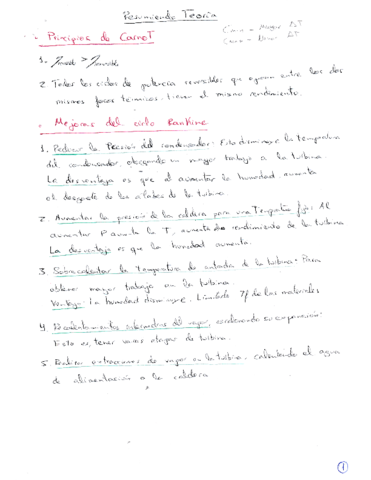 Resumiendo Teoría
- Principios de Carnot
1. ηrevers > ηirreversible
2 Todos los ciclos de potencia reversibles que operan entre los dos
mismos focos térmicos, tienen el mismo rendimiento.
- Mejoras del ciclo Rankine
1. Reducir la Presión del condensador: Esto disminuye la temperatura
del condensador, otorgando un mayor trabajo a la turbina
La desventaja es que al aumentar la humedad aumenta
el desgaste de los alabes de la turbina
2. Aumentar la presion de la caldera para una Temperatura fija: Al
aumentar P aumenta la T, aumenta el rendimiento de la turbina
La desventaja es que la humedad aumenta.
3 Sobrecalentar la Temperatura de entrada de la turbina: Para
obtener mayor trabajo en la turbina.
Ventaja: La humedad disminuye. Limitada por los materiales
4. Recalentamientos intermedios del vapor,
Esto es, tener varias etapas de turbina.
5. Realizar extracciones de vapor en la turbina, calentando el agua
de alimentación a la caldera
1